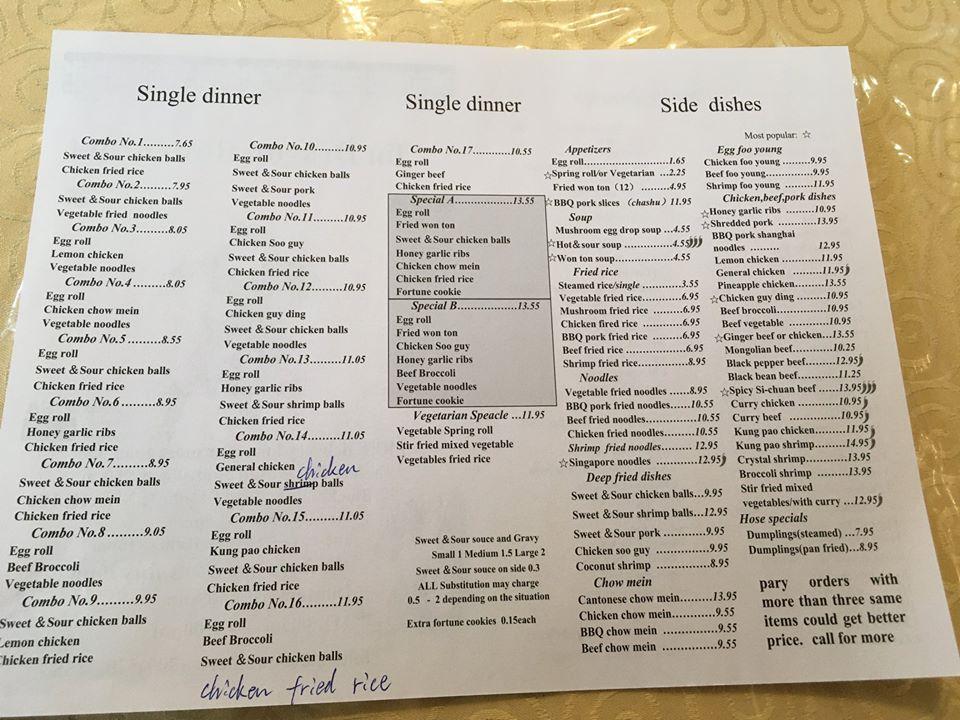 Single dinner
Combo No.1.........7.65
Sweet & Sour chicken balls
Chicken fried rice
Combo No.2.........7.95
Sweet & Sour chicken balls
Vegetable fried noodles
Combo No.3.........8.05
Egg roll
Lemon chicken
Vegetable noodles
Combo No.4.........8.05
Egg roll
Chicken chow mein
Vegetable noodles
Combo No.5.........8.55
Egg roll
Sweet & Sour chicken balls
Chicken fried rice
Combo No.6.........8.95
Egg roll
Honey garlic ribs
Chicken fried rice
Combo No.7.........8.95
Sweet & Sour chicken balls
Chicken chow mein
Chicken fried rice
Combo No.8.........9.05
Egg roll
Beef Broccoli
Vegetable noodles
Combo No.9.........9.95
Sweet & Sour chicken balls
Lemon chicken
Chicken fried rice
Combo No.10.........10.95
Egg roll
Sweet & Sour chicken balls
Sweet & Sour pork
Vegetable noodles
Combo No.11.........10.95
Egg roll
Chicken Soo guy
Sweet & Sour chicken balls
Chicken fried rice
Combo No.12.........10.95
Egg roll
Chicken guy ding
Sweet & Sour chicken balls
Vegetable noodles
Combo No.13.........11.05
Egg roll
Honey garlic ribs
Sweet & Sour shrimp balls
Chicken fried rice
Combo No.14.........11.05
Egg roll
General chicken
chicken
Sweet & Sour shrimp balls
Vegetable noodles
Combo No.15.........11.05
Egg roll
Kung pao chicken
Sweet & Sour chicken balls
Chicken fried rice
Combo No.16.........11.95
Egg roll
Beef Broccoli
Sweet & Sour chicken balls
chicken fried rice
Single dinner
Combo No.17............10.55
Egg roll
Ginger beef
Chicken fried rice
Special A..................13.55
Egg roll
Fried won ton
Sweet & Sour chicken balls
Honey garlic ribs
Chicken chow mein
Chicken fried rice
Fortune cookie
Special B..................13.55
Egg roll
Fried won ton
Chicken Soo guy
Honey garlic ribs
Beef Broccoli
Vegetable noodles
Fortune cookie
Vegetarian Speacle ...11.95
Vegetable Spring roll
Stir fried mixed vegetable
Vegetables fried rice
Sweet & Sour souce and Gravy
Small 1 Medium 1.5 Large 2
Sweet & Sour souce on side 0.3
ALL Substitution may charge
0.5 - 2 depending on the situation
Extra fortune cookies 0.15each
Side dishes
Appetizers
Egg roll..........................1.65
☆Spring roll/or Vegetarian ...2.25
Fried won ton (12) .........4.95
☆BBQ pork slices (chashu) 11.95
Soup
Mushroom egg drop soup ...4.55
☆Hot&sour soup ...............4.55
☆Won ton soup..................4.55
Fried rice
Steamed rice/single ............3.55
Vegetable fried rice............6.95
Mushroom fried rice .........6.95
Chicken fired rice ............6.95
BBQ pork fried rice .........6.95
Beef fried rice ..................6.95
Shrimp fried rice...............8.95
Noodles
Vegetable fried noodles ......8.95
BBQ pork fried noodles......10.55
Beef fried noodles............10.55
Chicken fried noodles.........10.55
Shrimp fried noodles ...... 12.95
☆Singapore noodles ............12.95
Deep fried dishes
Sweet &Sour chicken balls...9.95
Sweet &Sour shrimp balls...12.95
Sweet &Sour pork ............9.95
Chicken soo guy ...............9.95
Coconut shrimp ...............8.95
Chow mein
Cantonese chow mein.........13.95
Chicken chow mein............9.55
BBQ chow mein ...............9.55
Beef chow mein ...............9.55
Most popular: ☆
Egg foo young
Chicken foo young .........9.95
Beef foo young...............9.95
Shrimp foo young .........11.95
Chicken,beef,pork dishes
☆Honey garlic ribs .........10.95
☆Shredded pork ............13.95
BBQ pork shanghai
noodles ......... 12.95
Lemon chicken ............11.95
General chicken .........11.95
Pineapple chicken.........13.55
☆Chicken guy ding .........10.95
Beef broccoli...............10.95
Beef vegetable ............10.95
☆Ginger beef or chicken...13.55
Mongolian beef............10.25
Black pepper beef.........12.95
Black bean beef............11.25
☆Spicy Si-chuan beef ......13.95
Curry chicken ............10.95
Curry beef ...............10.95
Kung pao chicken .........11.95
Kung pao shrimp.........14.95
Crystal shrimp............13.95
Broccoli shrimp .........13.95
Stir fried mixed
vegetables/with curry ...12.95
Hose specials
Dumplings(steamed) ...7.95
Dumplings(pan fried)...8.95
pary orders with
more than three same
items could get better
price. call for more